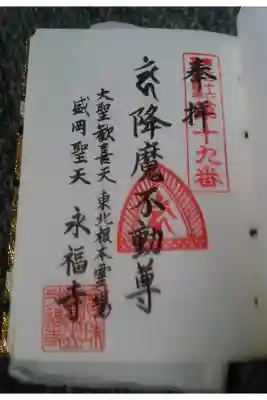 奉拝
第十九番
降魔不動尊
大聖歓喜天 東北根本霊場
盛岡聖天 永福寺